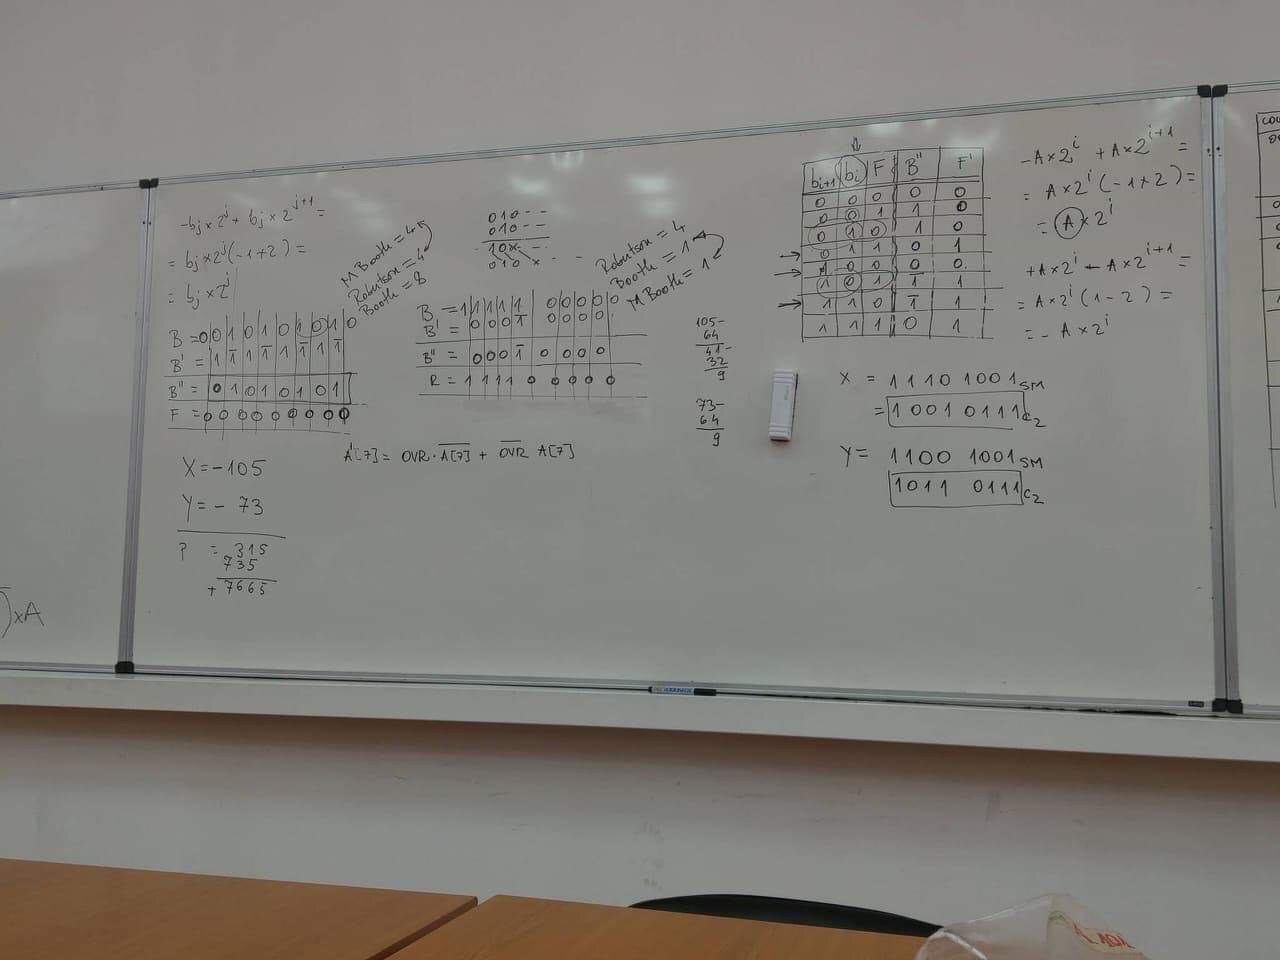 -bj × 2^j + bj × 2^(j+1) =
= bj × 2^j (-1+2) =
= bj × 2^j
M Booth = 4
Robertson = 4
Booth = 8
B = 0 0 1 0 1 0 1 0 1 0
B' = 1 1̅ 1 1̅ 1 1̅ 1 1̅
B'' = 0 1 0 1 0 1 0 1
F = 0 0 0 0 0 0 0 0 0
X = -105
Y = - 73
P = 315
735
+ 7665
010--
010--
10x--
010x--
Robertson = 4
Booth = 1
M Booth = 1
B = 1 1 1 1 1 0 0 0 0 0
B' = 0 0 0 1̅ 0 0 0 0
B'' = 0 0 0 1̅ 0 0 0 0
R = 1 1 1 1 0 0 0 0 0
A'[7] = OVR · A̅[̅7̅]̅ + O̅V̅R̅ A[7]
105-
64
41-
32
9
73-
64
9
bi+1 bi F B'' F'
0 0 0 0 0
0 0 1 1 0
0 1 0 1 0
0 1 1 0 1
1 0 0 0 0
1 0 1 1̅ 1
1 1 0 1̅ 1
1 1 1 0 1
-A × 2^i + A × 2^(i+1) =
= A × 2^i (-1+2) =
= A × 2^i
+A × 2^i - A × 2^(i+1) =
= A × 2^i (1-2) =
= - A × 2^i
X = 1110 1001 SM
= 1001 0111 C2
Y = 1100 1001 SM
1011 0111 C2
)xA